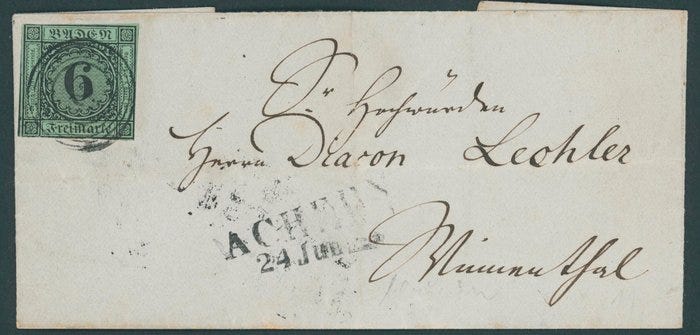 BADEN
6
Freimarke
Sr Hochwürden
Herrn Diacon Lechler
Winnenthal
ACHERN
24 Jun